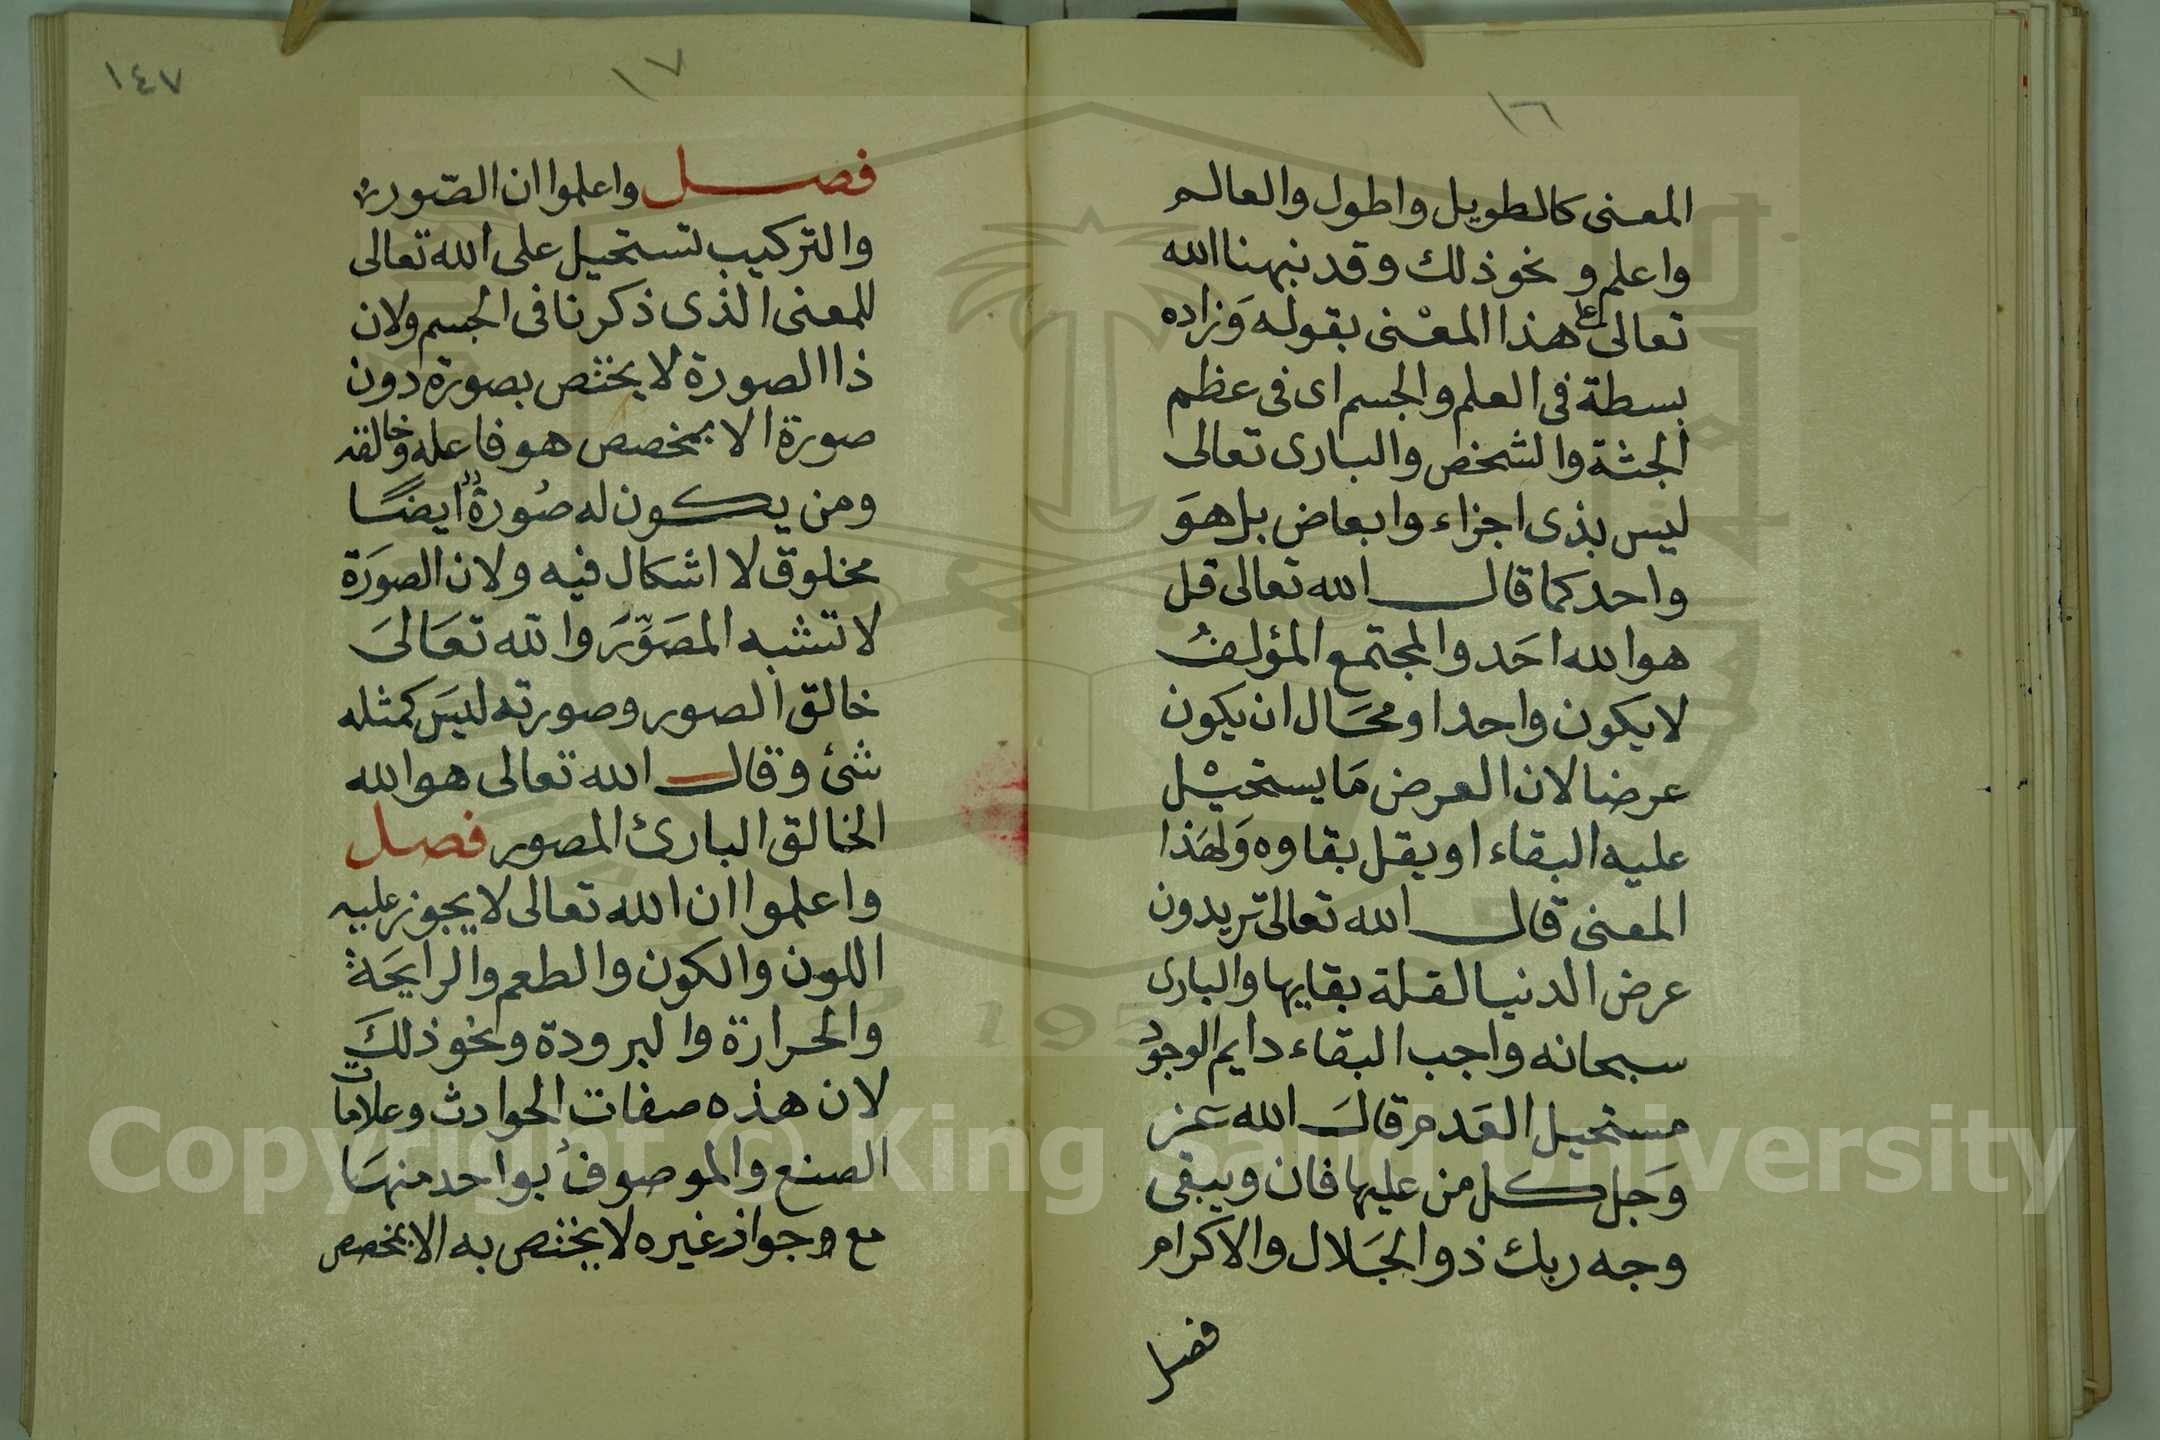 ١٦
المعنى كالطويل واطول والعالم
واعلم ونحو ذلك وقد نبهنا الله
تعالى على هذا المعْنى بقوله وَزاده
بسطة في العلم والجسم اى فى عظم
الجثة والشخص والبارى تعالى
ليس بذى اجزاء وابعاض بل هوَ
واحد كما قال الله تعالى قل
هو الله احَد والمجتمع المؤلفُ
لا يكون واحدا ومحَال ان يكون
عرضا لان العرض مَا يستحيْل
عليه البقاء او يقل بقاوه وَلهَذا
المعنى قال الله تعالى تريدون
عرض الدنيا لقلة بقايها والبارى
سبحانه واجب البقاء دايم الوجود
مستحيل العَدم قالَ الله عَز
وَجَل كل من عليها فان ويبقى
وجه ربك ذو الجَلال والاكرام
فصل
١٧
١٤٧
فصل واعلموا ان الصّورة
والتركيب تستحيل على الله تعالى
للمعنى الذى ذكرنا فى الجسم ولان
ذا الصورة لا يختص بصورة دون
صورة الا بمخصص هو فاعله وخالقه
ومن يكون له صُورةٌ ايضًا
مخلوق لا اشكال فيه ولان الصورَة
لا تشبه المصَوّرَ والله تعَالىَ
خالق الصور وصورته ليسَ كمثله
شئ وقال الله تعالى هو الله
الخالق البارئ المصور فصل
واعلموا ان الله تعالى لا يجوز عليه
اللون والكون والطعم والرايحَة
والحرارة والبرودة ونحُو ذلكَ
لان هذه صفات الحوادث وعلامات
الصنع والموصوفُ بواحد منهَا
مع جواز غيره لا يختص به الا بمخصص
Copyright © King Saud University
195